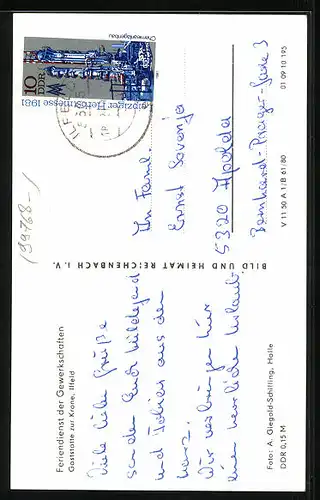 Feriendienst der Gewerkschaften
Gaststätte zur Krone, Ilfeld
Viele liebe Grüße
senden Euch Hildegard
und Tobias aus dem
Harz.
Wir verbringen hier
einen herrlichen Urlaub.
Foto: A. Giegold-Schilling, Halle
DDR 0,15 M
BILD UND HEIMAT REICHENBACH i. V.
Chemieanlagenbau
10 DDR
Leipziger Herbstmesse 1981
ILFELD
An Faml.
Ernst
5320 Apolda
Bernhard-Prager-Gasse 3
V 11 50 A 1/B 61/80
01 09 10 195
(99768-)